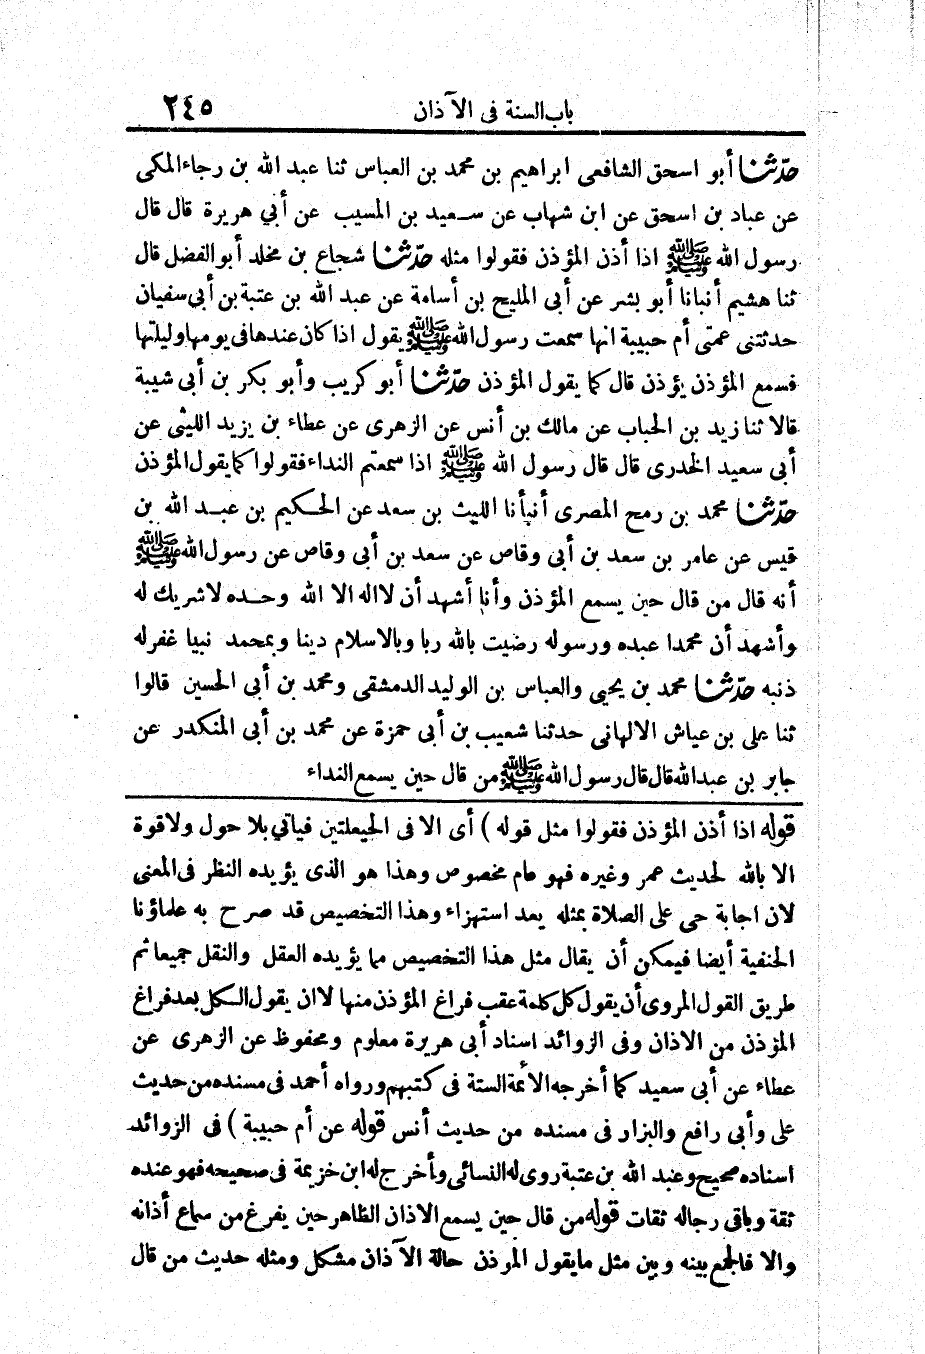 باب السنة فى الآذان ٢٤٥
حدّثنا أبو اسحق الشافعى ابراهيم بن محمد بن العباس ثنا عبد الله بن رجاء المكى
عن عباد بن اسحق عن ابن شهاب عن سعيد بن المسيب عن أبي هريرة قال قال
رسول الله ﷺ اذا أذن المؤذن فقولوا مثله حدّثنا شجاع بن مخلد أبو الفضل قال
ثنا هشيم أنبانا أبو بشر عن أبى المليح بن أسامة عن عبد الله بن عتبة بن أبى سفيان
حدثتنى عمتى أم حبيبة انها سمعت رسول الله ﷺ يقول اذا كان عندها فى يومها وليلتها
فسمع المؤذن يؤذن قال كما يقول المؤذن حدّثنا أبو كريب وأبو بكر بن أبى شيبة
قالا ثنا زيد بن الحباب عن مالك بن أنس عن الزهرى عن عطاء بن يزيد الليثى عن
أبى سعيد الخدرى قال قال رسول الله ﷺ اذا سمعتم النداء فقولوا كما يقول المؤذن
حدّثنا محمد بن رمح المصرى أنبأنا الليث بن سعد عن الحكيم بن عبد الله بن
قيس عن عامر بن سعد بن أبى وقاص عن سعد بن أبى وقاص عن رسول الله ﷺ
أنه قال من قال حين يسمع المؤذن وأنا أشهد أن لا اله الا الله وحده لا شريك له
وأشهد أن محمدا عبده ورسوله رضيت بالله ربا وبالاسلام دينا وبمحمد نبيا غفر له
ذنبه حدّثنا محمد بن يحيى والعباس بن الوليد الدمشقى ومحمد بن أبي الحسين قالوا
ثنا على بن عياش الالهانى حدثنا شعيب بن أبى حمزة عن محمد بن أبى المنكدر عن
جابر بن عبد الله قال قال رسول الله ﷺ من قال حين يسمع النداء
قوله اذا أذن المؤذن فقولوا مثل قوله ) أى الا فى الحيعلتين فياتي بلا حول ولا قوة
الا بالله لحديث عمر وغيره فهو عام مخصوص وهذا هو الذى يؤيده النظر فى المعنى
لان اجابة حى على الصلاة بمثله يعد استهزاء وهذا التخصيص قد صرح به علماؤنا
الحنفية أيضا فيمكن أن يقال مثل هذا التخصيص مما يؤيده العقل والنقل جميعا ثم
طريق القول المروى أن يقول كل كلمة عقب فراغ المؤذن منها لا ان يقول الكل بعد فراغ
المؤذن من الاذان وفى الزوائد اسناد أبى هريرة معلوم ومحفوظ عن الزهرى عن
عطاء عن أبي سعيد كما أخرجه الأئمة الستة فى كتبهم ورواه أحمد فى مسنده من حديث
على وأبى رافع والبزار فى مسنده من حديث أنس قوله عن أم حبيبة ) فى الزوائد
اسناده صحيح وعبد الله بن عتبة روى له النسائى وأخرج له ابن خزيمة فى صحيحه فهو عنده
ثقة وباقى رجاله ثقات قوله من قال حين يسمع الاذان الظاهر حين يفرغ من سماع أذانه
والا فالجمع بينه وبين مثل ما يقول المؤذن حالة الآذان مشكل ومثله حديث من قال